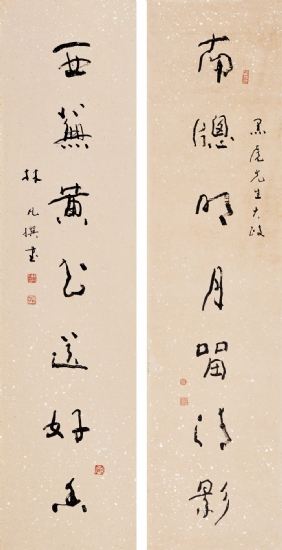 南牕明月留清影
黑虎先生大政
西蕪黃花送好香
林凡撰書